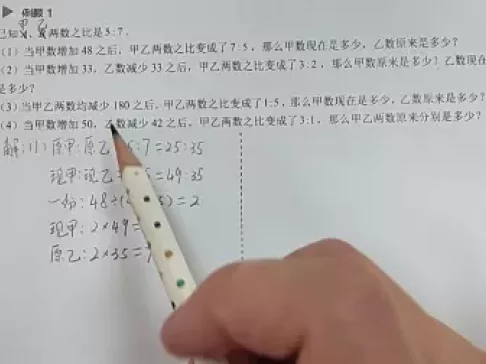 例题 1
甲 乙
已知 两数之比是 5:7.
(1) 当甲数增加 48 之后, 甲乙两数之比变成了 7:5, 那么甲数现在是多少, 乙数原来是多少?
(2) 当甲数增加 33, 乙数减少 33 之后, 甲乙两数之比变成了 3:2, 那么甲数原来是多少? 乙数现在
是多少?
(3) 当甲乙两数均减少 180 之后, 甲乙两数之比变成了 1:5, 那么甲数现在是多少, 乙数原来是多少?
(4) 当甲数增加 50, 乙数减少 42 之后, 甲乙两数之比变成了 3:1, 那么甲乙两数原来分别是多少?
解:(1) 原甲:原乙 5:7=25:35
现甲:现乙 5=49:35
一份:48÷( 5)=2
现甲:2×49=
原乙:2×35=7